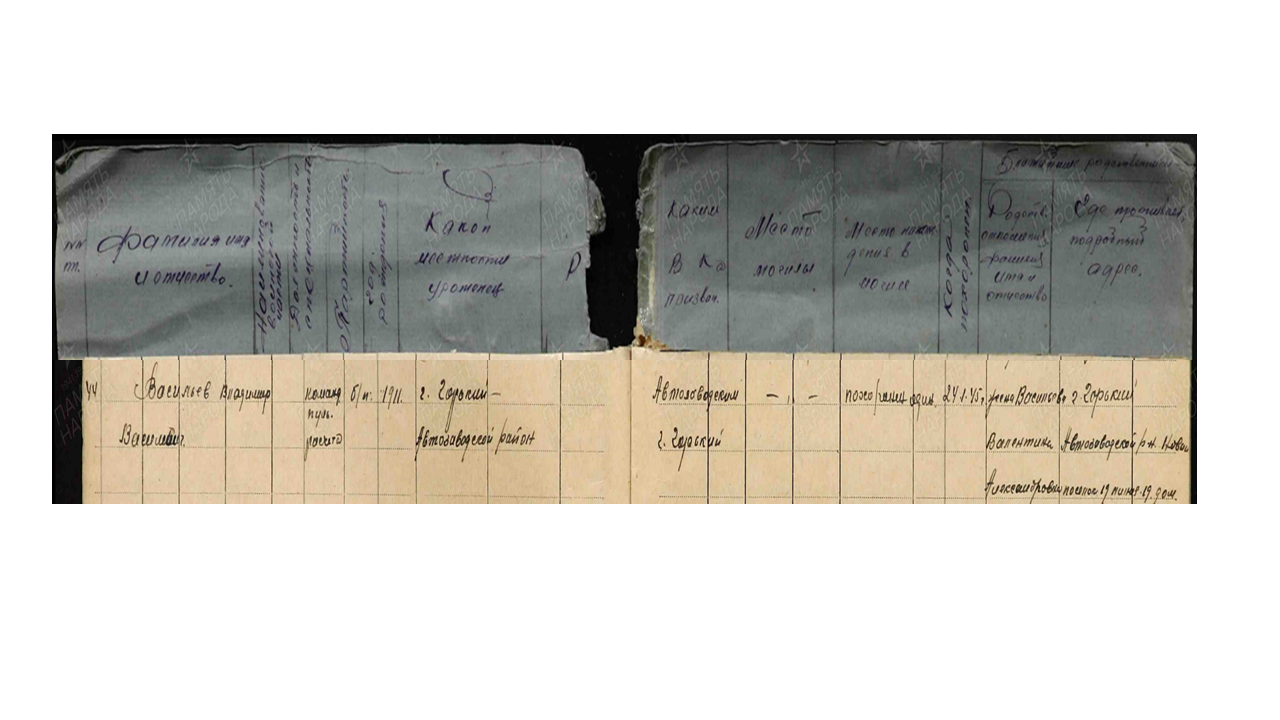 Ближайшие родственники
№№ пп.
Фамилия имя
и отчество.
Наименование
воинской
части
Должность и
специальность
Партийность.
Год
рождения
Какой
местности
уроженец
Р
Каким
В К
призван.
Место
могилы
Место нахож
дения в
могиле
Когда
похоронен.
Родств.
отношения
фамилия
имя и
отчество
Где проживает
подробный
адрес.
44 Васильев Владимир команд б/п. 1911. г. Горький – Автозаводским – „ – похоронен один. 24.1.45г. жена Васильева г. Горький
Васильевич. пуль. Автозаводской район г. Горький Валентина Автозаводской р-н.
расчета
Александровна поселок 19 линия 19 дом.